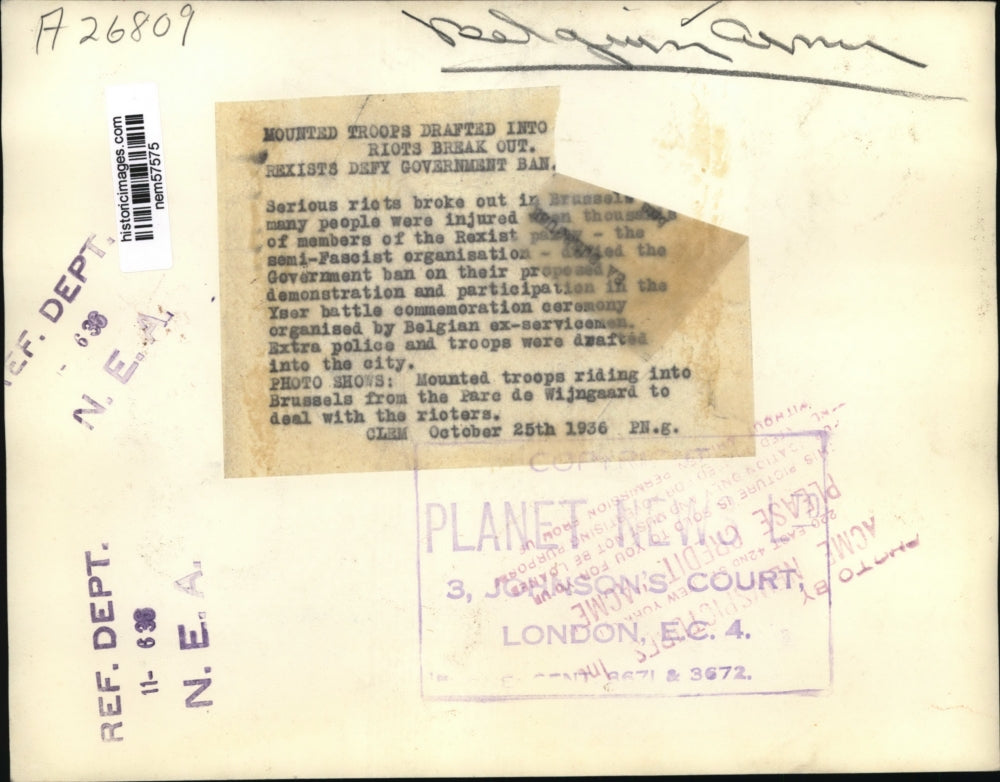 A 26809
Belgium Army
historicimages.com
nem57575
MOUNTED TROOPS DRAFTED INTO
RIOTS BREAK OUT.
REXISTS DEFY GOVERNMENT BAN.
Serious riots broke out in Brussels
many people were injured when thousands
of members of the Rexist party - the
semi-Fascist organisation - defied the
Government ban on their proposed
demonstration and participation in the
Yser battle commemoration ceremony
organised by Belgian ex-servicemen.
Extra police and troops were drafted
into the city.
PHOTO SHOWS: Mounted troops riding into
Brussels from the Parc de Wijngaard to
deal with the rioters.
CLEM October 25th 1936 PN.g.
REF. DEPT.
6 36
N. E. A.
REF. DEPT.
11- 6 36
N. E. A.
PLANET NEWS
3, JOHNSON'S COURT,
LONDON, E.C. 4.
3671 & 3672.
PHOTO BY
ACME
220 EAST 42ND ST NEW YORK
PLEASE CREDIT ACME
THIS PICTURE IS SOLD TO YOU FOR YOUR